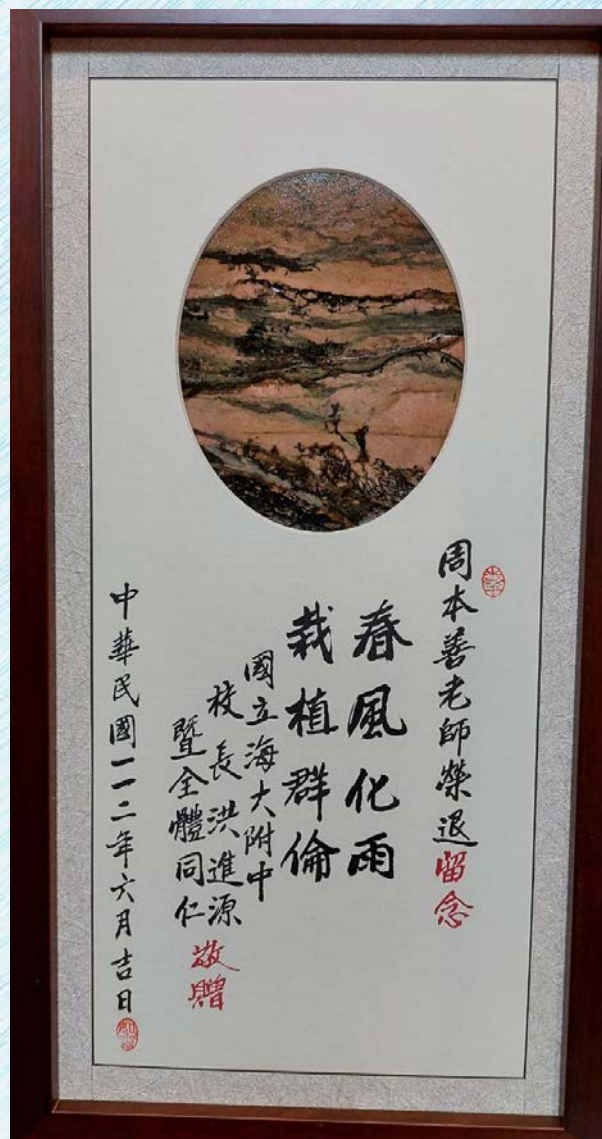 周本善老師榮退留念
春風化雨
栽植群倫
國立海大附中
校長洪進源
暨全體同仁敬贈
中華民國一一二年六月吉日